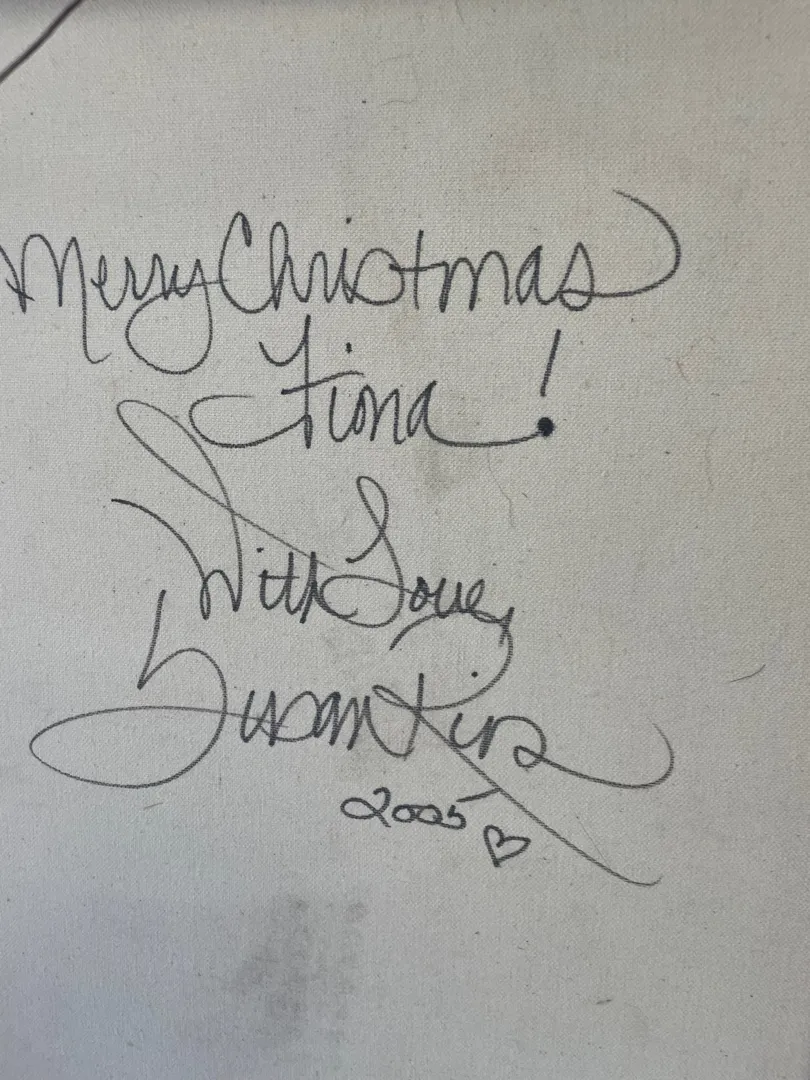 Merry Christmas
Fiona!
With Love,
Susan Rios
2005